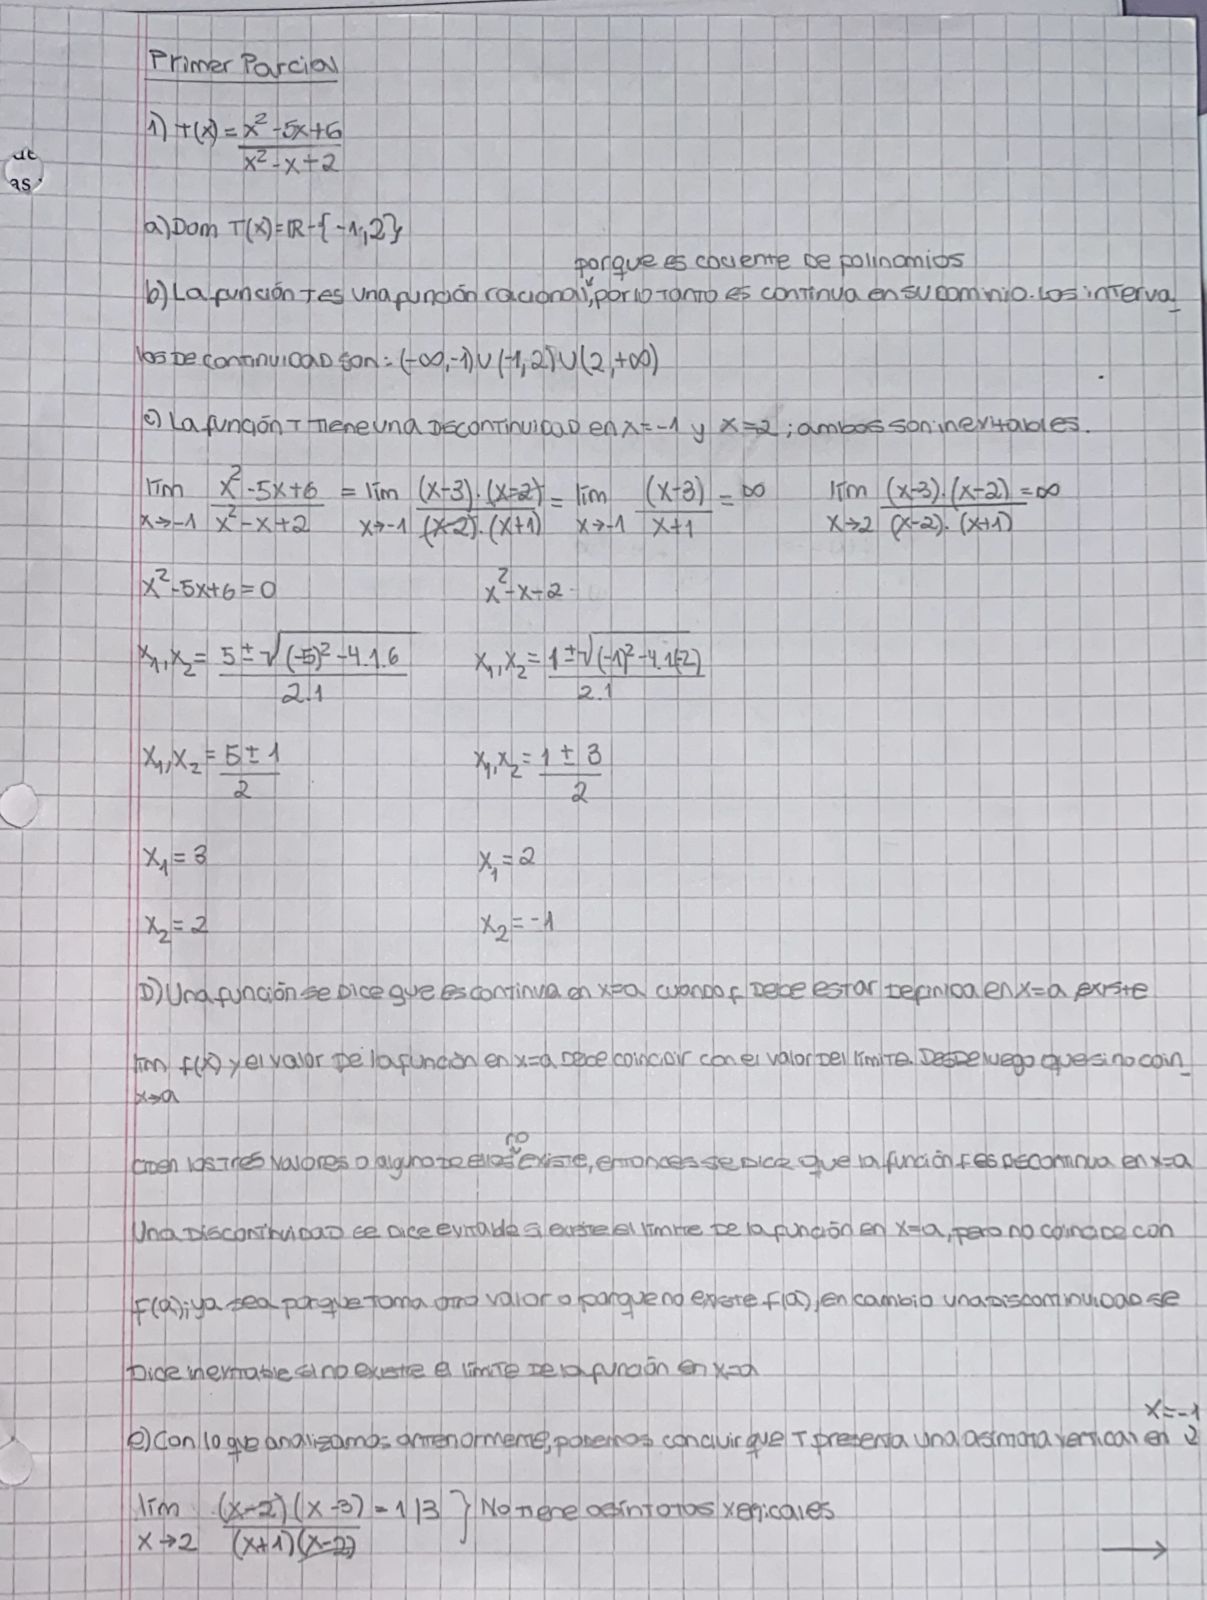 Primer Parcial
1) T(x) = x² - 5x + 6 / x² - x + 2
ut
as
a) Dom T(x) = ℝ - {-1, 2}
porque es cociente de polinomios
b) La función T es una función racional, por lo tanto es continua en su dominio. Los interva_
los de continuidad son: (-∞, -1) ∪ (-1, 2) ∪ (2, +∞)
c) La función T tiene una discontinuidad en x = -1 y x = 2; ambos son inevitables.
lím x→-1 x² - 5x + 6 / x² - x + 2 = lím x→-1 (x-3).(x-2) / (x-2).(x+1) = lím x→-1 (x-3) / x+1 = ∞ lím x→2 (x-3).(x-2) / (x-2).(x+1) = ∞
x² - 5x + 6 = 0 x² - x - 2
x₁, x₂ = 5 ± √(-5)² - 4.1.6 / 2.1 x₁, x₂ = 1 ± √(-1)² - 4.1(-2) / 2.1
x₁, x₂ = 5 ± 1 / 2 x₁, x₂ = 1 ± 3 / 2
x₁ = 3 x₁ = 2
x₂ = 2 x₂ = -1
D) Una función se dice que es continua en x=a cuando f debe estar definida en x=a existe
lím x→a f(x) y el valor de la función en x=a debe coincidir con el valor del límite. Desde luego que si no coin_
ciden los tres valores o alguno de ellos no existe, entonces se dice que la función f es discontinua en x=a
Una discontinuidad se dice evitable si existe el límite de la función en x=a, pero no coincide con
f(a); ya sea porque toma otro valor o porque no existe f(a), en cambio una discontinuidad se
dice inevitable si no existe el límite de la función en x=a
x = -1
e) Con lo que analizamos anteriormente, podemos concluir que T presenta una asíntota vertical en 2
lím x→2 (x-2)(x-3) / (x+1)(x-2) = 1/3 } No tiene asíntotas verticales
→